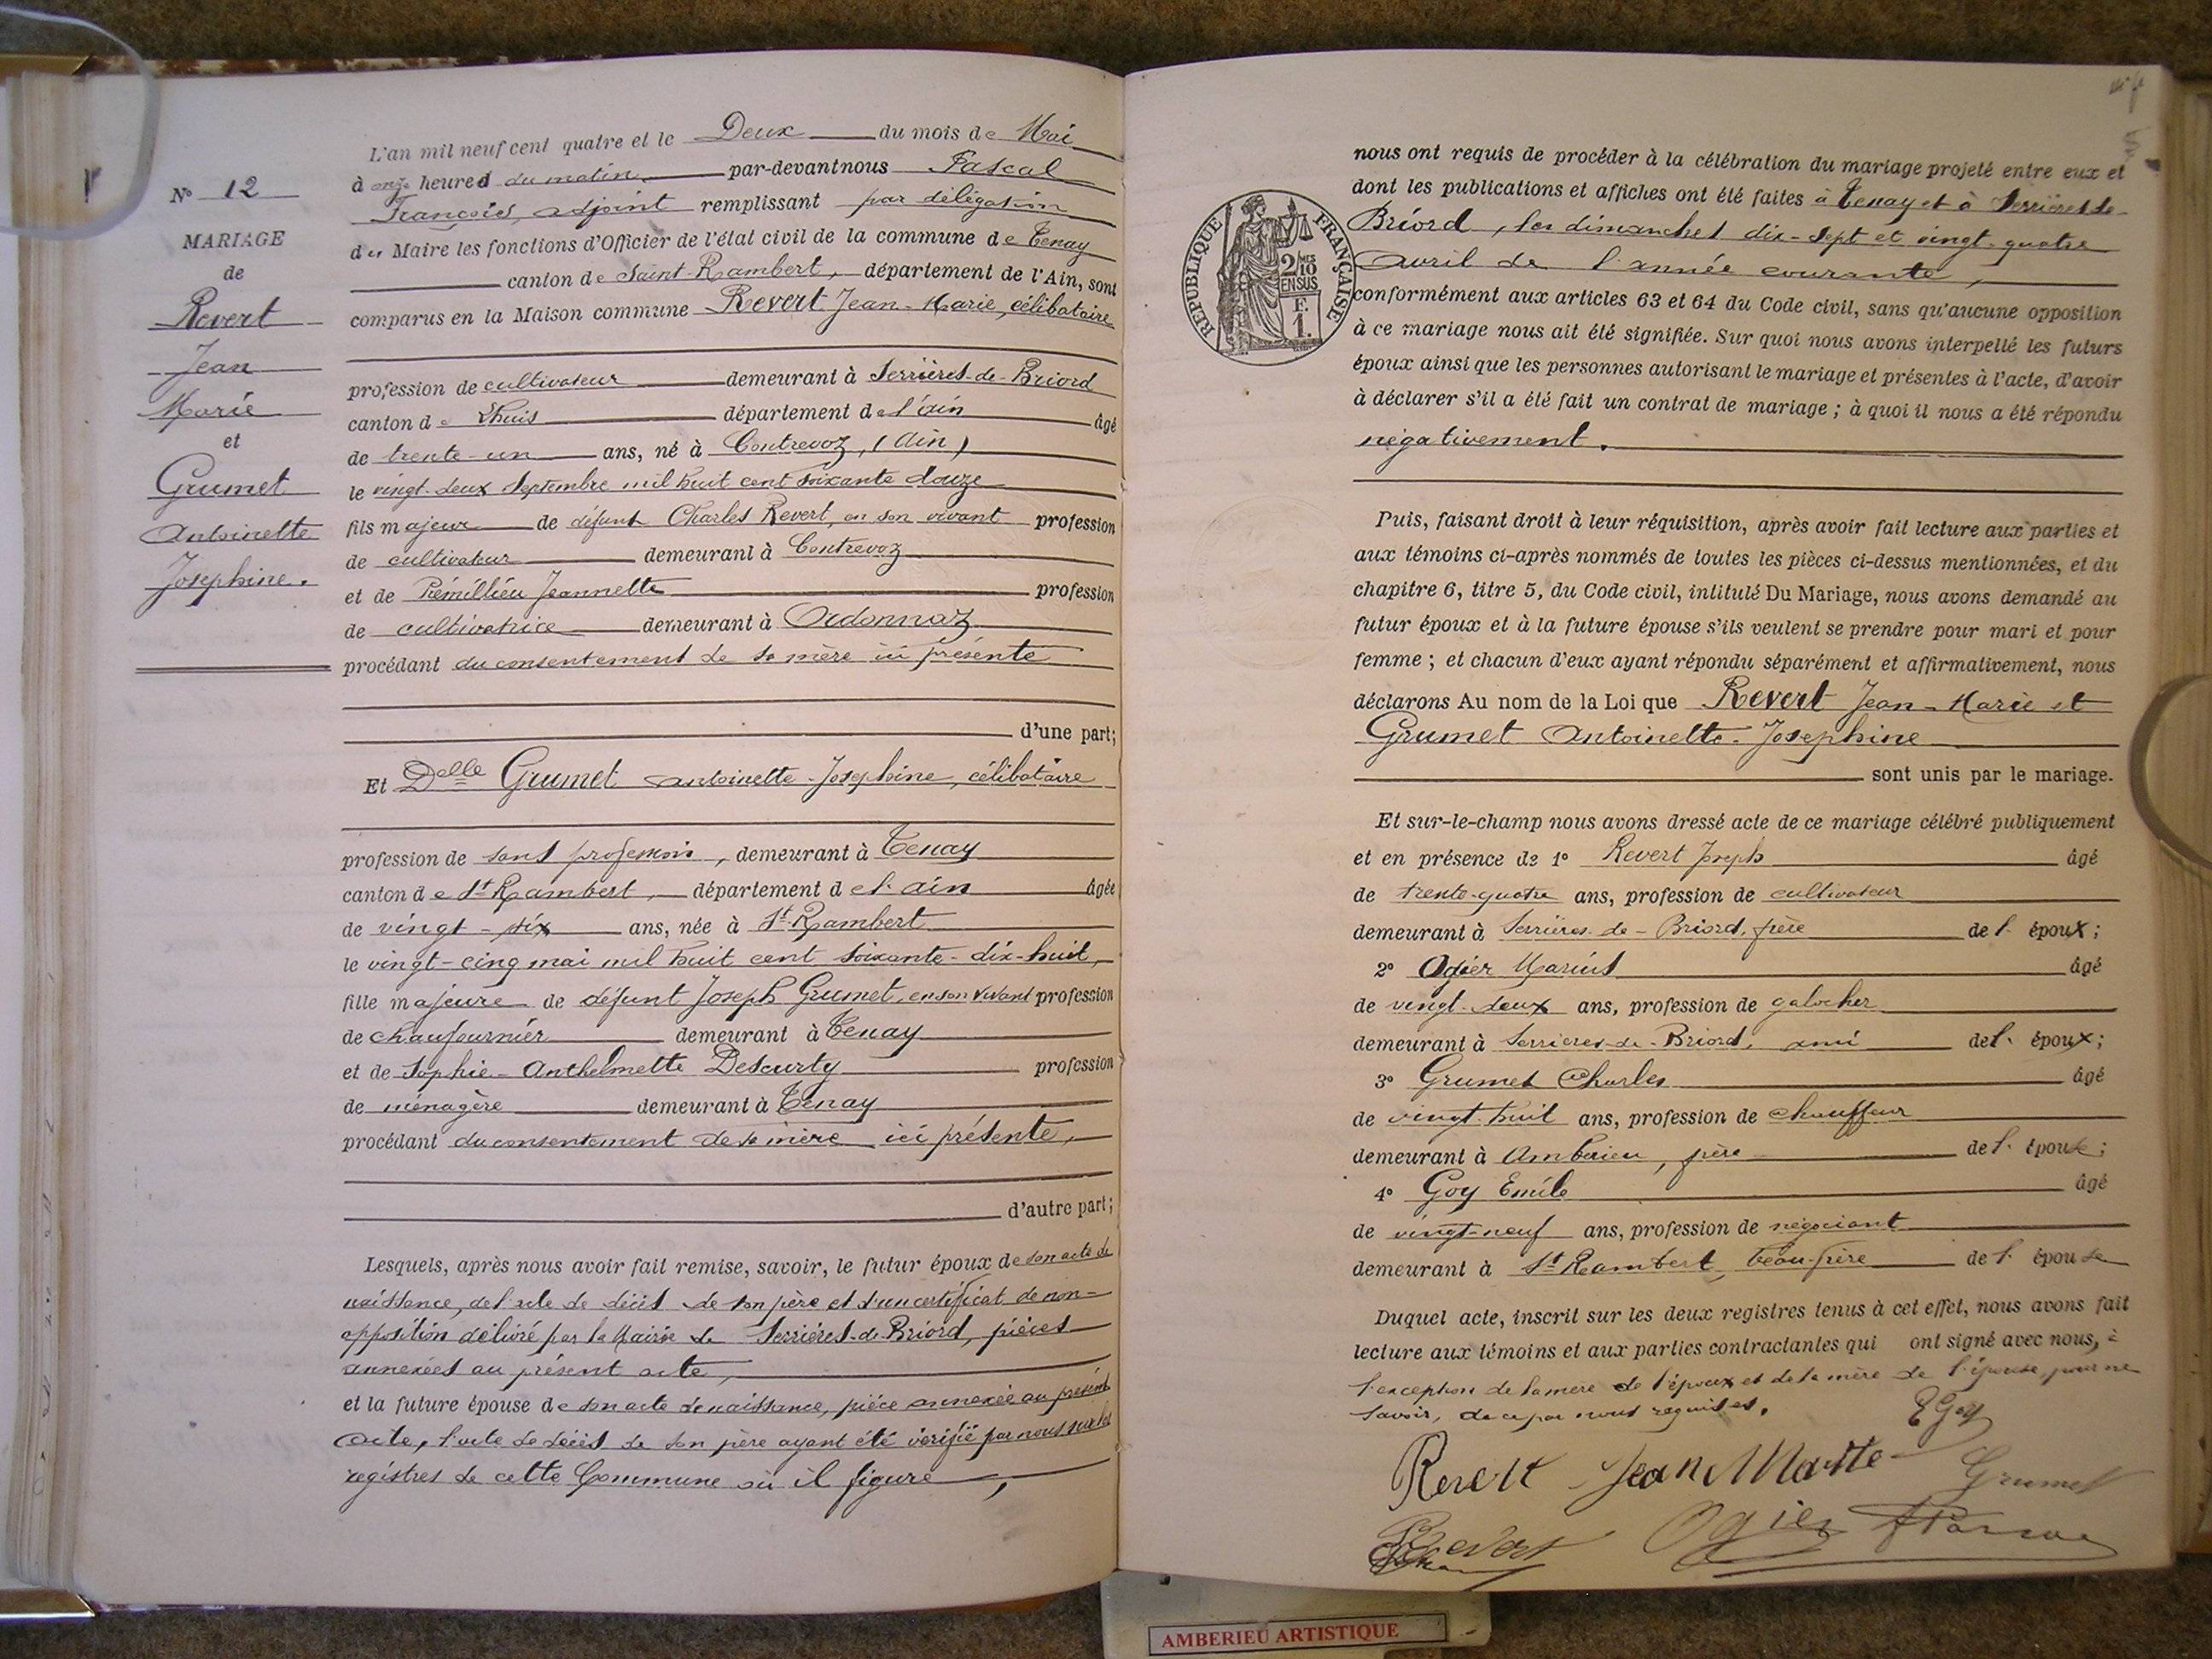 L'an mil neuf cent quatre et le Deux du mois de Mai
à onze heures du matin par-devant nous Pascal
François, adjoint remplissant par délégation
du Maire les fonctions d'Officier de l'état civil de la commune de Tenay
canton de Saint-Rambert, département de l'Ain, sont
comparus en la Maison commune Revert Jean-Marie, célibataire
profession de cultivateur demeurant à Serrières-de-Briord
canton de Lhuis département de l'ain âgé
de trente-un ans, né à Contrevoz, (Ain)
le vingt-deux Septembre mil huit cent soixante douze
fils majeur de défunt Charles Revert, en son vivant profession
de cultivateur demeurant à Contrevoz
et de Prémillieu Jeannette profession
de cultivatrice demeurant à Ordonnaz
procédant du consentement de sa mère ici présente
d'une part;
Et Delle Grumet Antoinette-Josephine, célibataire
profession de sans profession, demeurant à Tenay
canton de St Rambert, département de l'ain âgée
de vingt-six ans, née à St-Rambert
le vingt-cinq mai mil huit cent soixante-dix-huit,
fille majeure de défunt Joseph Grumet, en son vivant profession
de chaufournier demeurant à Tenay
et de Sophie-Anthelmette Descurty profession
de ménagère demeurant à Tenay
procédant du consentement de sa mère ici présente,
d'autre part;
Lesquels, après nous avoir fait remise, savoir, le futur époux de son acte de
naissance, de l'acte de décès de son père et d'un certificat de non-
opposition délivré par la Mairie de Serrières-de-Briord, pièces
annexées au présent acte,
et la future épouse de son acte de naissance, pièce annexée au présent
acte, l'acte de décès de son père ayant été vérifié par nous sur les
registres de cette Commune où il figure,
No 12
MARIAGE
de
Revert
Jean
Marie
et
Grumet
Antoinette
Josephine.
nous ont requis de procéder à la célébration du mariage projeté entre eux et
dont les publications et affiches ont été faites à Tenay et à Serrières de
Briord, les dimanches dix-sept et vingt-quatre
Avril de l'année courante,
conformément aux articles 63 et 64 du Code civil, sans qu'aucune opposition
à ce mariage nous ait été signifiée. Sur quoi nous avons interpellé les futurs
époux ainsi que les personnes autorisant le mariage et présentes à l'acte, d'avoir
à déclarer s'il a été fait un contrat de mariage ; à quoi il nous a été répondu
négativement.
RÉPUBLIQUE FRANÇAISE
2/10MES
EN SUS
F.
1.
Puis, faisant droit à leur réquisition, après avoir fait lecture aux parties et
aux témoins ci-après nommés de toutes les pièces ci-dessus mentionnées, et du
chapitre 6, titre 5, du Code civil, intitulé Du Mariage, nous avons demandé au
futur époux et à la future épouse s'ils veulent se prendre pour mari et pour
femme ; et chacun d'eux ayant répondu séparément et affirmativement, nous
déclarons Au nom de la Loi que Revert Jean-Marie et
Grumet Antoinette-Josephine
sont unis par le mariage.
Et sur-le-champ nous avons dressé acte de ce mariage célébré publiquement
et en présence de 1° Revert Joseph âgé
de trente-quatre ans, profession de cultivateur
demeurant à Serrières-de-Briord, frère de l'époux;
2° Ogier Marius âgé
de vingt-deux ans, profession de galocher
demeurant à Serrieres-de-Briord, ami de l'époux;
3° Grumet Charles âgé
de vingt-huit ans, profession de chauffeur
demeurant à Ambérieu, frère de l'épouse;
4° Goy Emile âgé
de vingt-neuf ans, profession de négociant
demeurant à St Rambert, beau-frère de l'épouse
Duquel acte, inscrit sur les deux registres tenus à cet effet, nous avons fait
lecture aux témoins et aux parties contractantes qui ont signé avec nous, à
l'exception de la mère de l'époux et de la mère de l'épouse, pour ne
savoir, de ce par nous requises.
E Goy
Revert Jean Marie
Grumet
Revert
Ogier
AMBERIEU ARTISTIQUE